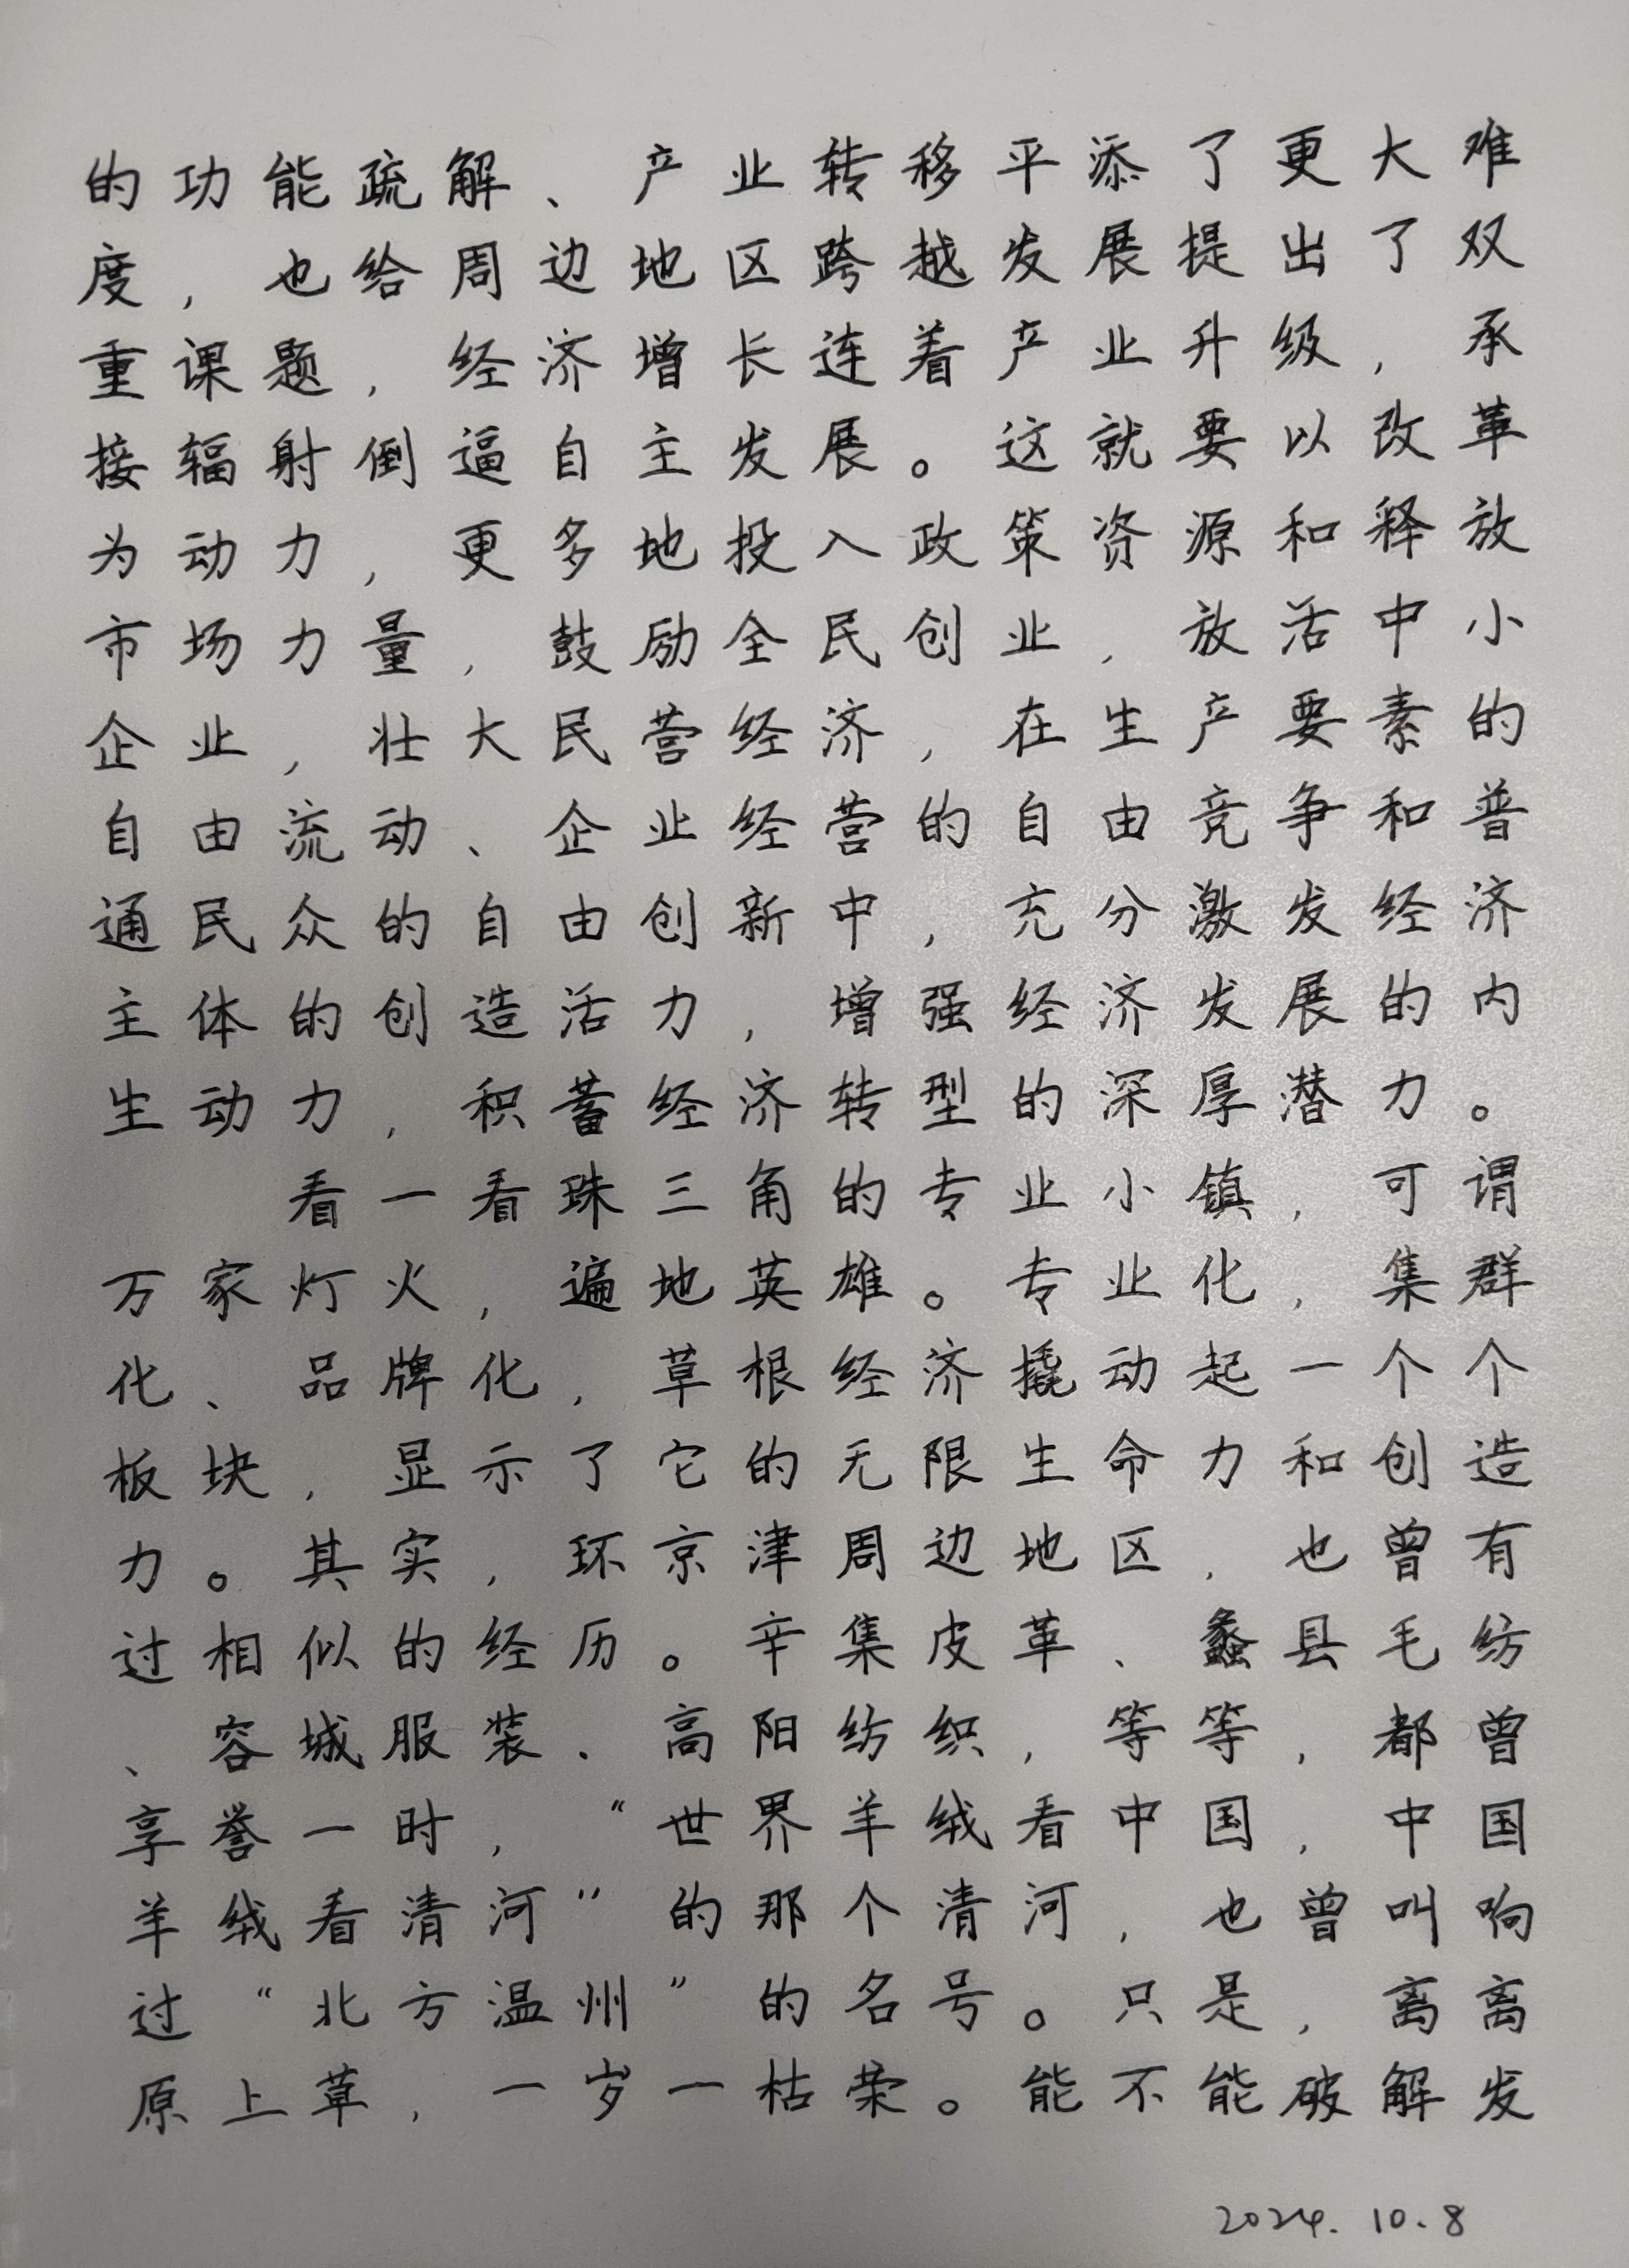 的功能疏解、产业转移平添了更大难
度，也给周边地区跨越发展提出了双
重课题，经济增长连着产业升级，承
接辐射倒逼自主发展。这就要以改革
为动力，更多地投入政策资源和释放
市场力量，鼓励全民创业，放活中小
企业，壮大民营经济，在生产要素的
自由流动、企业经营的自由竞争和普
通民众的自由创新中，充分激发经济
主体的创造活力，增强经济发展的内
生动力，积蓄经济转型的深厚潜力。
看一看珠三角的专业小镇，可谓
万家灯火，遍地英雄。专业化，集群
化、品牌化，草根经济撬动起一个个
板块，显示了它的无限生命力和创造
力。其实，环京津周边地区，也曾有
过相似的经历。辛集皮革、蠡县毛纺
、容城服装、高阳纺织，等等，都曾
享誉一时，“世界羊绒看中国，中国
羊绒看清河”的那个清河，也曾叫响
过“北方温州”的名号。只是，离离
原上草，一岁一枯荣。能不能破解发
2024.10.8